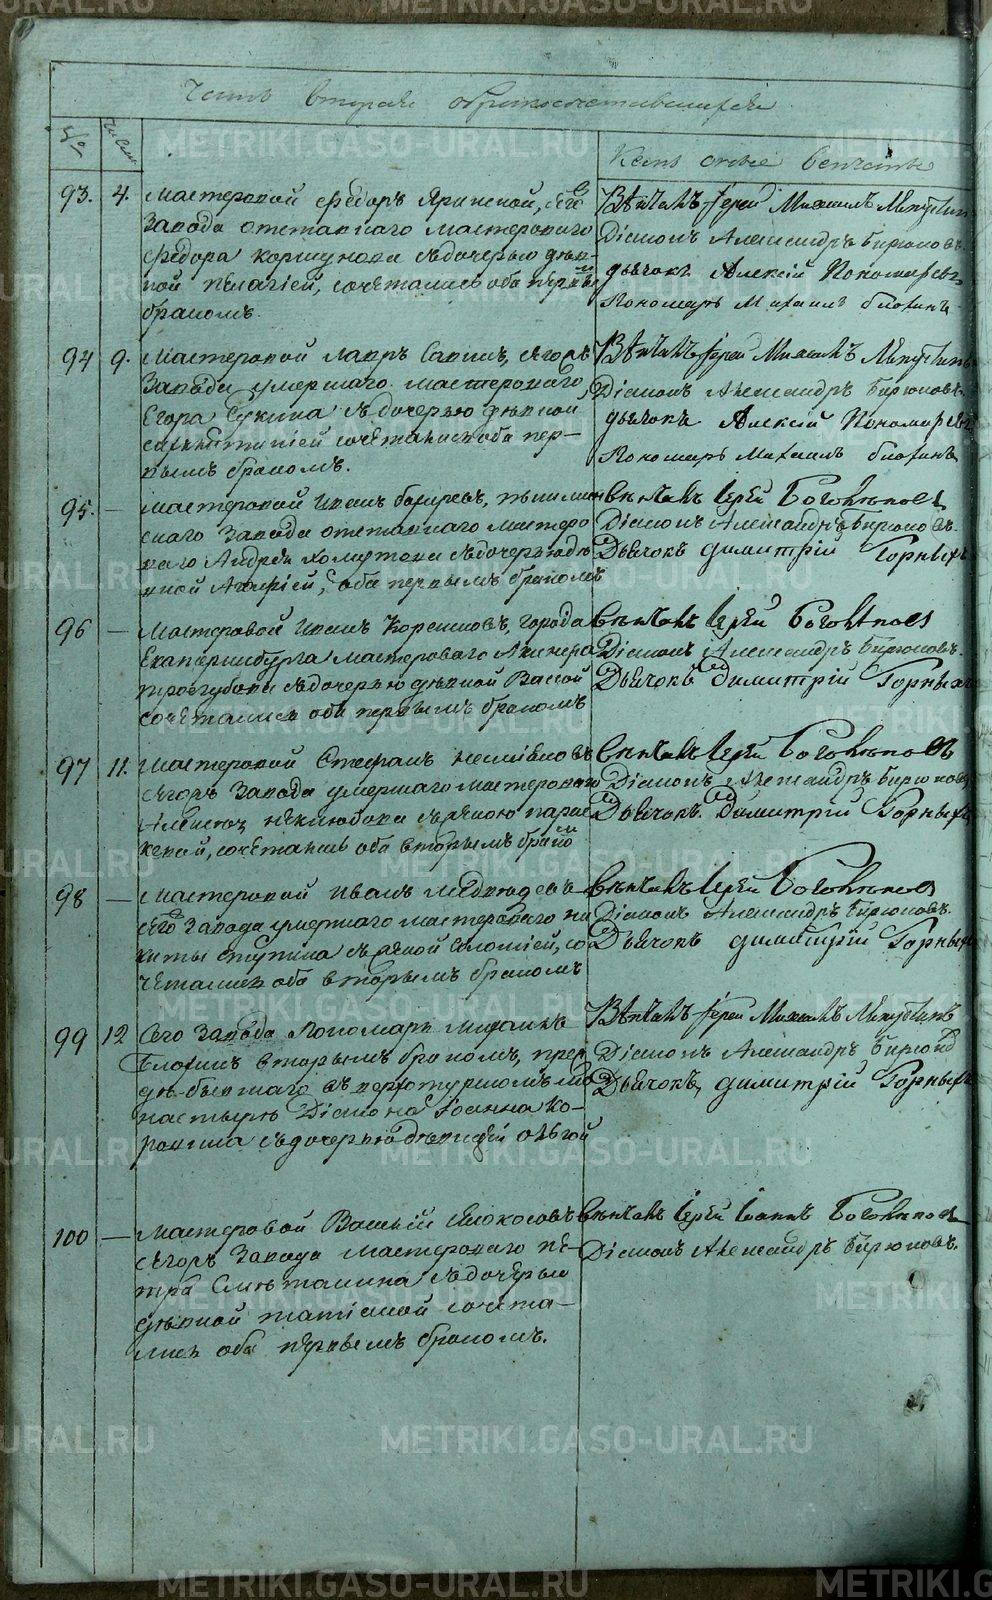 Часть вторая о бракосочетавшихся
№ Число
Кемъ оные венчаны
93. 4. Мастеровой Федоръ Яринской, сего
Завода отставнаго мастероваго
Федора Коршунова съ дочерью дѣви-
цой Пелагіей, сочетались оба первымъ
бракомъ.
Вѣнчалъ Іерей Михаилъ
Діаконъ Александръ Бирюковъ
Дьячокъ Алексій Пономаревъ
Пономарь Михаилъ Блохинъ
94 9. Мастеровой Лавръ Савинъ, сегожъ
Завода умершаго мастероваго
Егора Сукина съ дочерью дѣвкой
сочетались оба пер-
вымъ бракомъ.
Вѣнчалъ Іерей Михаилъ
Діаконъ Александръ Бирюковъ
Дьячокъ Алексій Пономаревъ
Пономарь Михаилъ Блохинъ
95. — Мастеровой Иванъ
скаго Завода отставнаго мастеро
ваго Андрея Хомутова съ дочерью дѣ
вкой Агафіей, оба первымъ бракомъ
Вѣнчалъ Іерей Боголѣповъ
Діаконъ Александръ Бирюковъ
Дьячокъ Димитрій Горныхъ
96 — Мастеровой Иванъ, города
Екатеринбурга мастероваго
Троегубова съ дочерью дѣвкой Вассой
сочетались оба первымъ бракомъ
Вѣнчалъ Іерей Боголѣповъ
Діаконъ Александръ Бирюковъ
Дьячокъ Димитрій Горныхъ
97 11. Мастеровой Стефанъ
сегожъ Завода умершаго мастероваго
Алексея Неклюдова съ женою Парас
кевой, сочетались оба вторымъ брако
Вѣнчалъ Іерей Боголѣповъ
Діаконъ Александръ Бирюковъ
Дьячокъ Димитрій Горныхъ
98 — Мастеровой Иванъ Медвѣдевъ
сего Завода умершаго мастероваго Ни
киты Ступина съ женой Соломіей, со
четались оба вторымъ бракомъ
Вѣнчалъ Іерей Боголѣповъ
Діаконъ Александръ Бирюковъ
Дьячокъ Димитрій Горныхъ
99 12 Сего Завода Пономарь Михаилъ
Блохинъ вторымъ бракомъ, преж
де бывшаго въ Верхотурскомъ мо
настырѣ Діакона Іоанна Ко-
ровина съ дочерью дѣвицей Ольгой
Вѣнчалъ Іерей Михаилъ
Діаконъ Александръ Бирюковъ
Дьячокъ Димитрій Горныхъ
100 — Мастеровой Василій
сегожъ Завода мастероваго Пе-
тра Сметанина съ дочерью
дѣвкой Татіаной сочета-
лись оба первымъ бракомъ.
Вѣнчалъ Іерей Іоаннъ Боголѣповъ
Діаконъ Александръ Бирюковъ.
METRIKI.GASO-URAL.RU